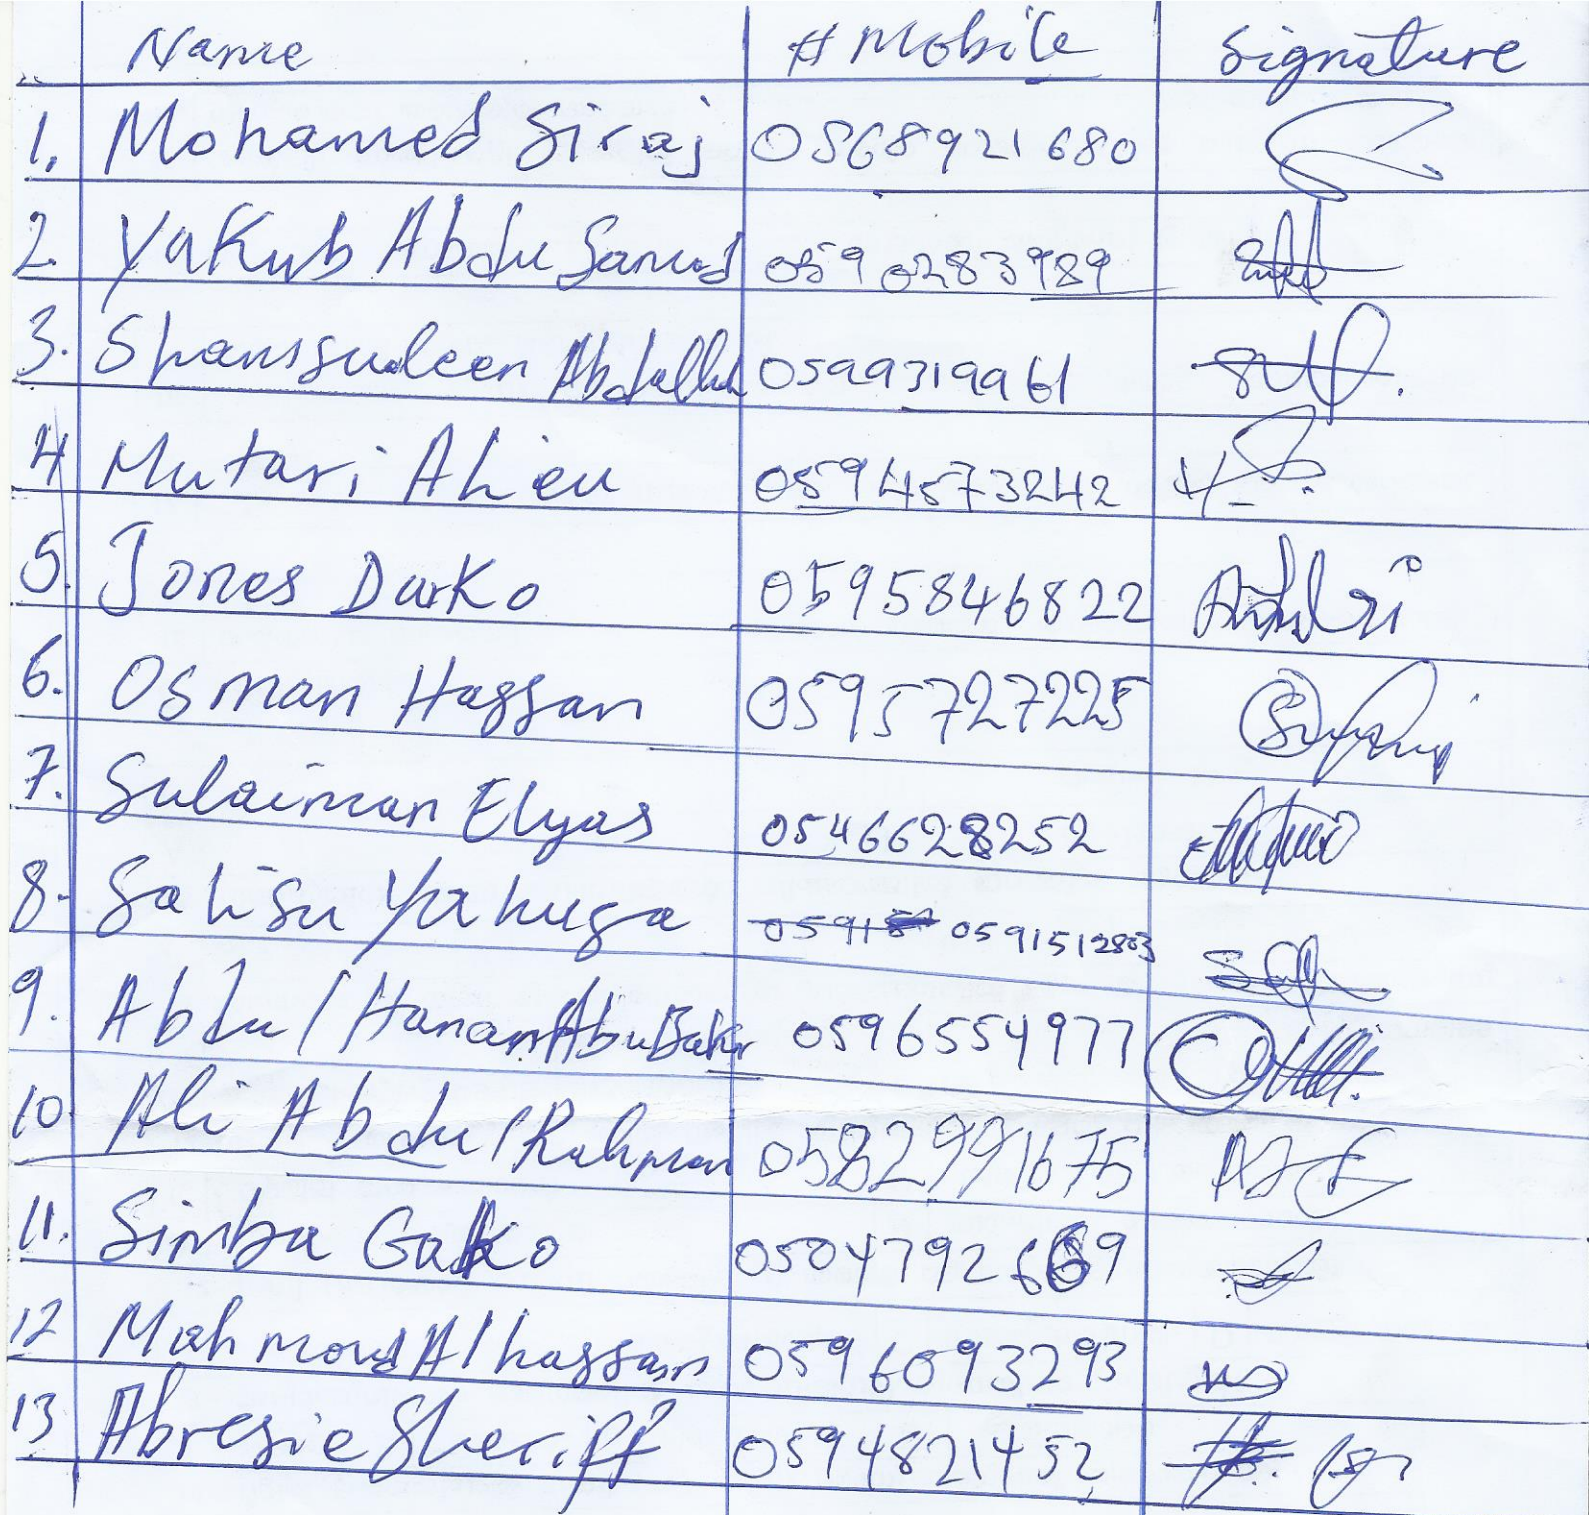 Name # Mobile Signature
1. Mohamed Siraj 0568921680
2. Yakub Abdu Samad 0590283989
3. Shamsudeen Abdallah 0599319961
4 Mutari Alieu 0594573242
5. Jones Darko 0595846822
6. Osman Hassan 0595727225
7. Sulaiman Elyas 0546628252
8. Salisu Yahuga 0591512803
9. Abdul Hanan AbuBakr 0596554977
10 Ali Abdul Rahman 0582991675
11. Simba Gakko 0504792669
12 Mahmoud Alhassan 0596093293
13 Abresie Sheriff 0594821452